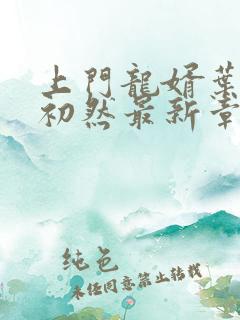 上門龍婿葉
初然最新章
純色
未經同意禁止转载